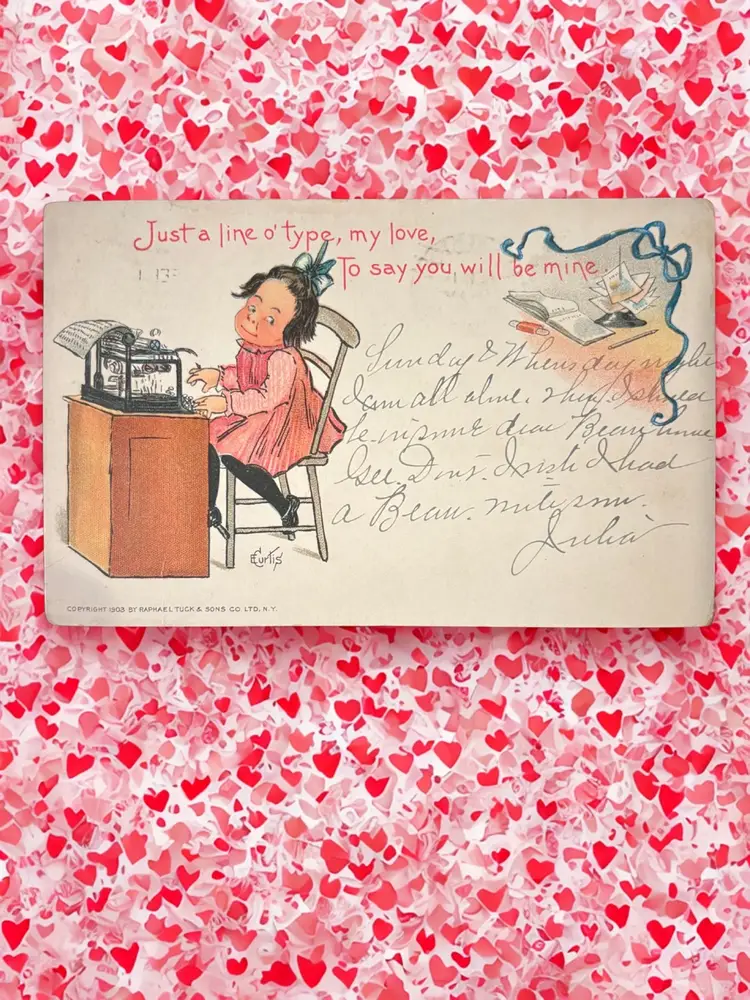 Just a line o' type, my love,
To say you will be mine.
Sunday & Whensday night
I am all alone. they I
be in some dear Beau
Gee. Don't. I wish I had
a Beau.
Julia
E Curtis
COPYRIGHT 1903 BY RAPHAEL TUCK & SONS CO. LTD. N.Y.